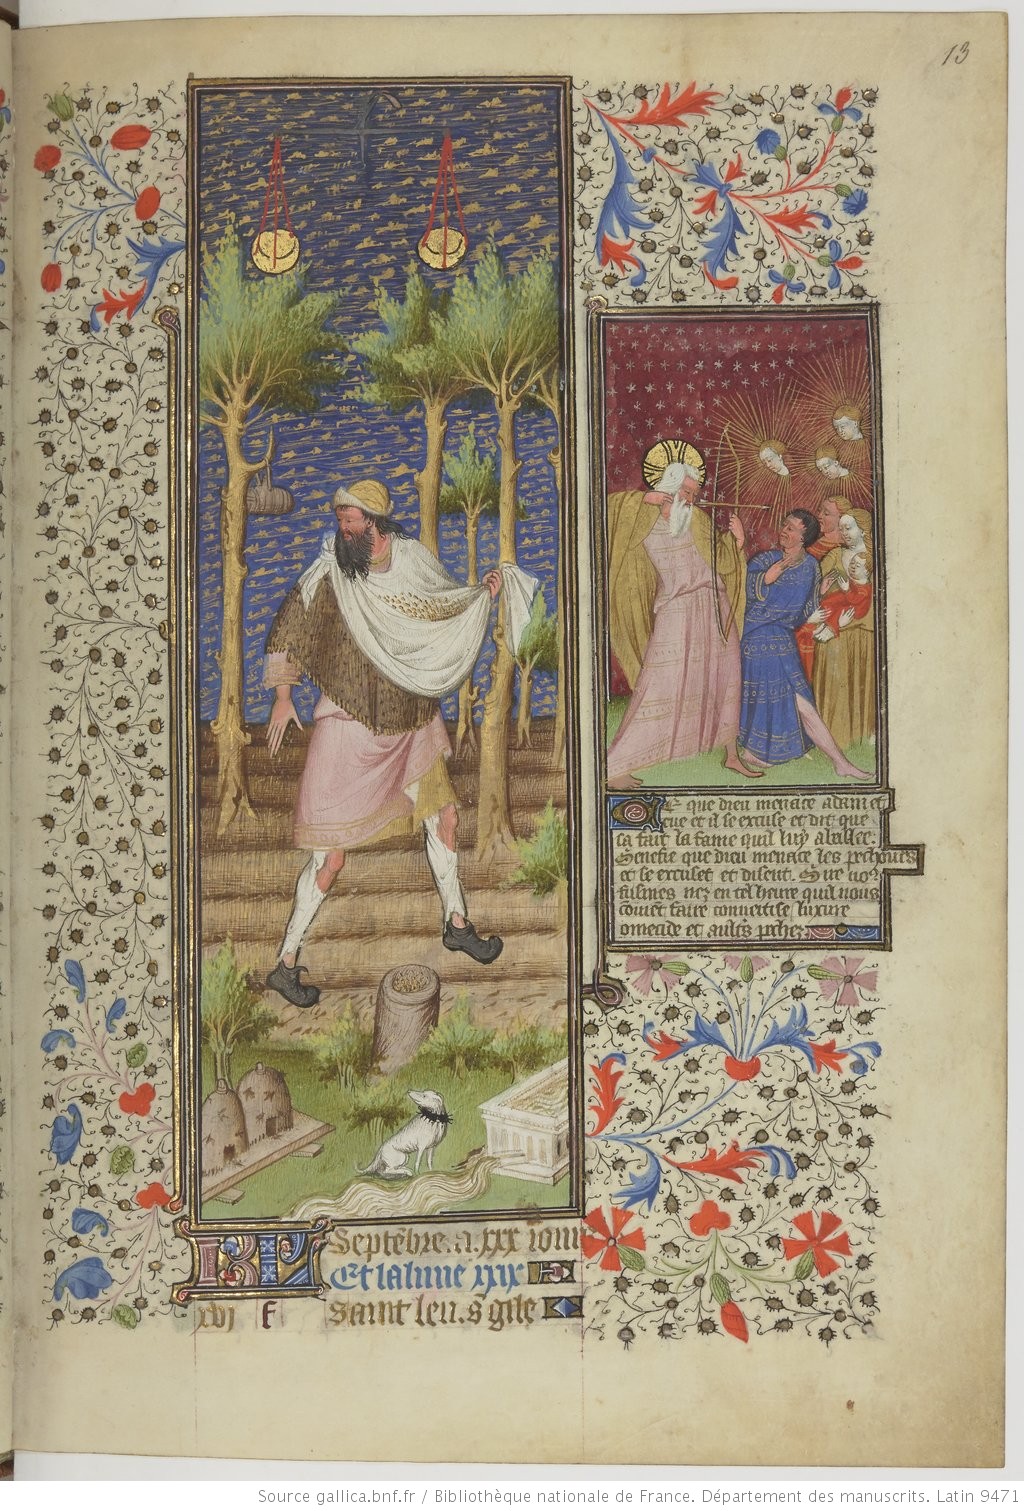 13
C e que dieu menace adam et
eue et il se excuse et dit que
sa fait la fame quil luy a baillee:
Senefie que dieu menace les pecheurs
et se excuset et disent. Que no9
fusmes nez en tel heure quil nous
couiet faire conuertise luxure
omecide et aultrs pechez
KL Septẽbre. a. xxx iours
Et la lune xxix
xvi F Saint leu. s gile
Source gallica.bnf.fr / Bibliothèque nationale de France. Département des manuscrits. Latin 9471